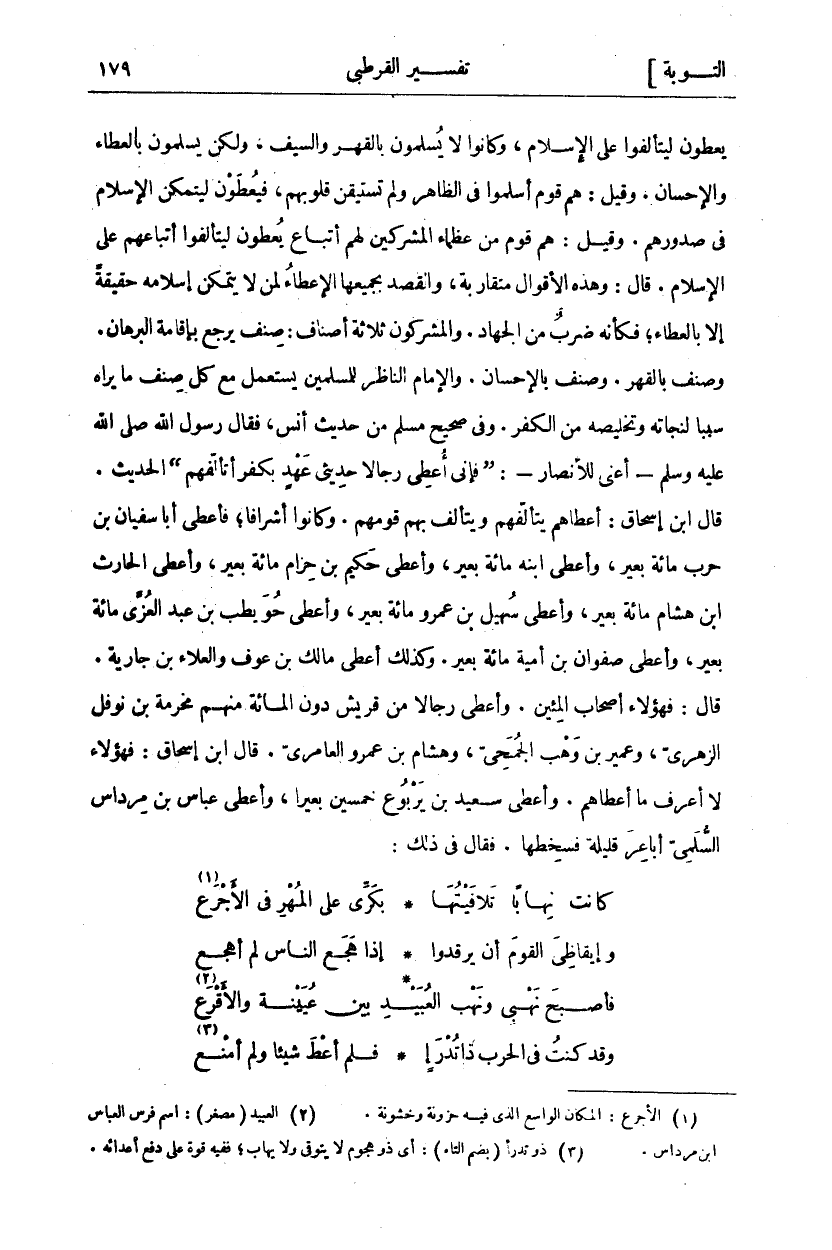 التـــوبة ]	تفســـير القرطبى	١٧٩
يعطون ليتألفوا على الإسلام ، وكانوا لا يُسلمون بالقهر والسيف ، ولكن يسلمون بالعطاء
والإحسان . وقيل : هم قوم أسلموا فى الظاهر ولم تستيقن قلوبهم ، فيُعطَوْن ليتمكن الإسلام
فى صدورهم . وقيل : هم قوم من عظماء المشركين لهم أتباع يُعطون ليتألفوا أتباعهم على
الإسلام . قال : وهذه الأقوال متقاربة ، والقصد بجميعها الإعطاءُ لمن لا يتمكن إسلامه حقيقةً
إلا بالعطاء ؛ فكأنه ضربٌ من الجهاد . والمشركون ثلاثة أصناف : صِنف يرجع بإقامة البرهان .
وصنف بالقهر . وصنف بالإحسان . والإمام الناظر للمسلمين يستعمل مع كل صِنف ما يراه
سببا لنجاته وتخليصه من الكفر . وفى صحيح مسلم من حديث أنس ، فقال رسول الله صلى الله
عليه وسلم — أعنى للأنصار — : ” فإنى أُعطِى رجالا حدِيثى عَهْدٍ بكفر أتألّفهم “ الحديث .
قال ابن إسحاق : أعطاهم يتألّفهم ويتألف بهم قومهم . وكانوا أشرافا ؛ فأعطى أبا سفيان بن
حرب مائة بعير ، وأعطى ابنه مائة بعير ، وأعطى حَكيم بن حِزام مائة بعير ، وأعطى الحارث
ابن هشام مائة بعير ، وأعطى سُهيل بن عمرو مائة بعير ، وأعطى حُوَيطب بن عبد العُزَّى مائة
بعير ، وأعطى صفوان بن أمية مائة بعير . وكذلك أعطى مالك بن عوف والعلاء بن جارية .
قال : فهؤلاء أصحاب المِئين . وأعطى رجالا من قريش دون المائة منهم مخرمة بن نوفل
الزهرىّ ، وعمير بن وَهْب الجُمَحِىّ ، وهشام بن عمرو العامرىّ . قال ابن إسحاق : فهؤلاء
لا أعرف ما أعطاهم . وأعطى سعيد بن يَرْبُوع خمسين بعيرا ، وأعطى عباس بن مِرداس
السُّلَمِىّ أباعِرَ قليلة فسخِطها . فقال فى ذلك :
كانت نِهابًا تَلَافَيْتُهَا * بكَرِّى على المُهْرِ فى الأَجْرَعِ (١)
وإيقاظِىَ القومَ أن يرقدوا * إذا هَجَع الناس لم أهجع
فأصبحَ نَهْبِى ونَهْب العُبَيْدِ * بين عُيَيْنة والأَقْرعِ (٢)
وقد كنتُ فى الحرب ذا تُدْرَإ * فلم أُعْطَ شيئا ولم أُمْنَعِ (٣)
(١) الأجرع : المكان الواسع الذى فيه حزونة وخشونة . (٢) العبيد ( مصغر ) : اسم فرس العباس
ابن مرداس . (٣) ذو تدرأ ( بضم التاء ) : أى ذو هجوم لا يتوقى ولا يهاب ؛ ففيه قوة على دفع أعدائه .